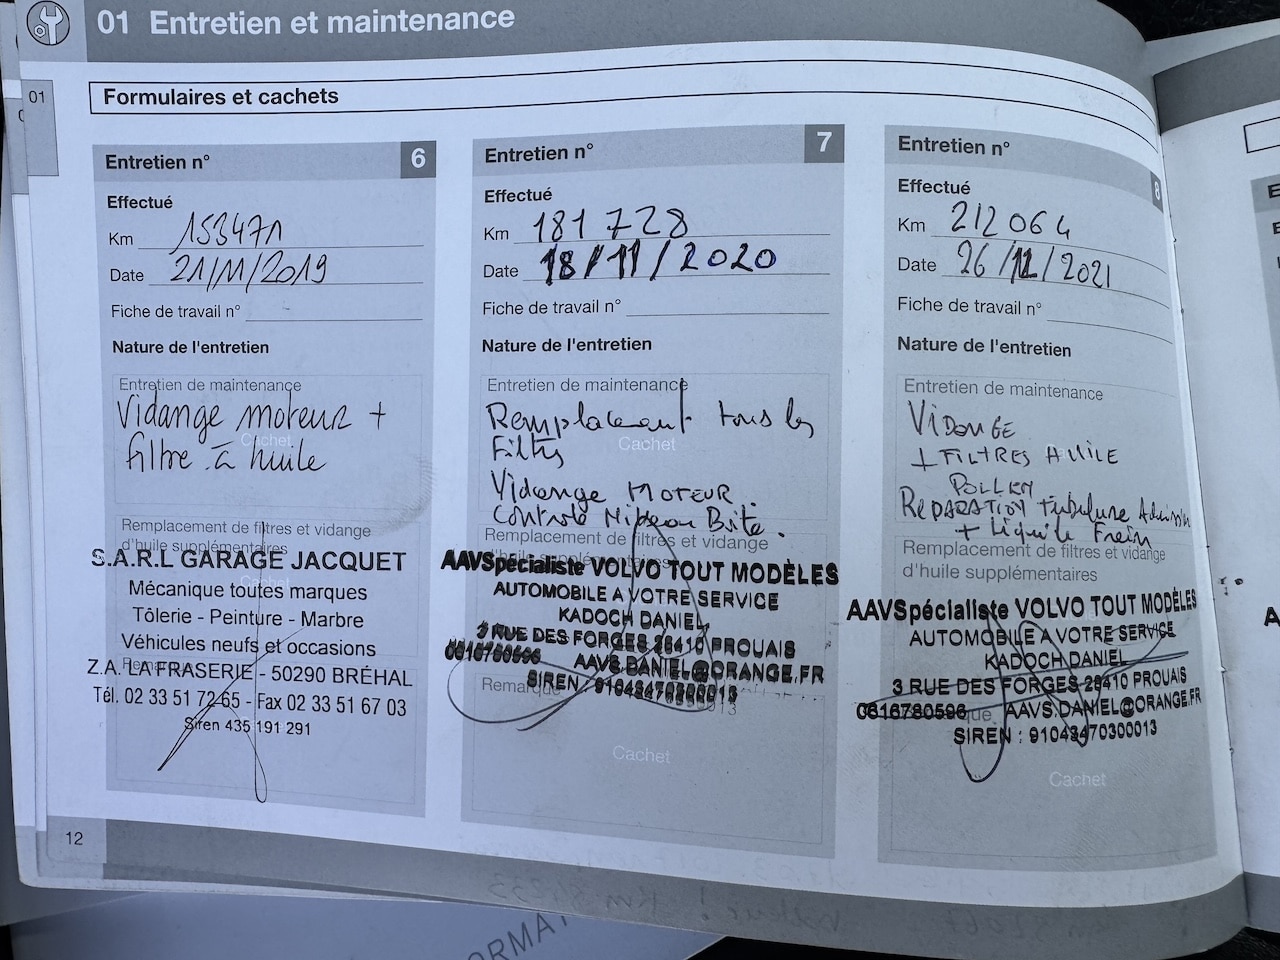 01 Entretien et maintenance
01
Formulaires et cachets
Entretien n° 6
Effectué
Km 153471
Date 21/11/2019
Fiche de travail n°
Nature de l'entretien
Entretien de maintenance
Vidange moteur +
filtre à huile
Cachet
Remplacement de filtres et vidange
d'huile supplémentaires
Cachet
S.A.R.L GARAGE JACQUET
Mécanique toutes marques
Tôlerie - Peinture - Marbre
Véhicules neufs et occasions
Remarque
Z.A. LA FRASERIE - 50290 BRÉHAL
Tél. 02 33 51 72 65 - Fax 02 33 51 67 03
Siren 435 191 291
12
Entretien n° 7
Effectué
Km 181 728
Date 18/11/2020
Fiche de travail n°
Nature de l'entretien
Entretien de maintenance
Remplacement tous les
Filtres
Cachet
Vidange MOTEUR.
Controle
Remplacement de filtres et vidange
d'huile supplémentaires
AAVSpécialiste VOLVO TOUT MODÈLES
AUTOMOBILE A VOTRE SERVICE
KADOCH DANIEL
3 RUE DES FORGES 28410 PROUAIS
0616780596 AAVS.DANIEL@ORANGE.FR
SIREN : 91043470300013
Remarque
Cachet
Entretien n° 8
Effectué
Km 212 064
Date 26/12/2021
Fiche de travail n°
Nature de l'entretien
Entretien de maintenance
VIDANGE
Cachet
+ FILTRES HUILE
POLLEN
REPARATION Tubulure Admission
+ Liquide Frein
Remplacement de filtres et vidange
d'huile supplémentaires
AAVSpécialiste VOLVO TOUT MODÈLES
AUTOMOBILE A VOTRE SERVICE
KADOCH DANIEL
3 RUE DES FORGES 28410 PROUAIS
0616780596 AAVS.DANIEL@ORANGE.FR
SIREN : 91043470300013
Cachet